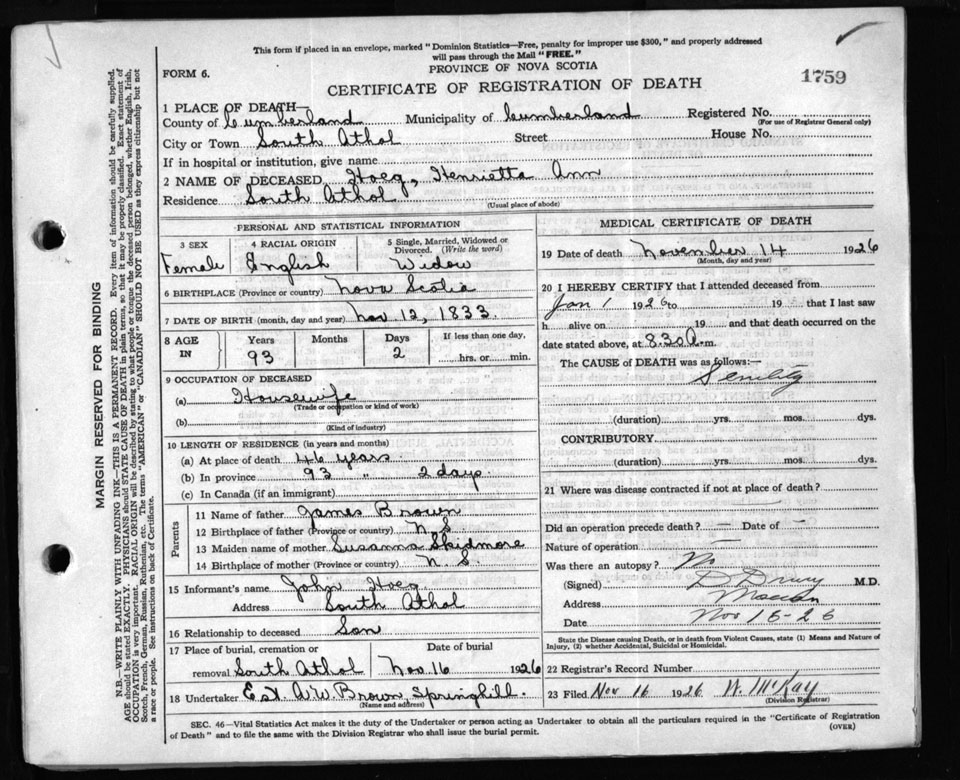 This form if placed in an envelope, marked "Dominion Statistics—Free, penalty for improper use $300," and properly addressed
will pass through the Mail "FREE."
PROVINCE OF NOVA SCOTIA
FORM 6.
CERTIFICATE OF REGISTRATION OF DEATH
1759
1 PLACE OF DEATH—
County of Cumberland Municipality of Cumberland Registered No.
(For use of Registrar General only)
City or Town South Athol Street House No.
If in hospital or institution, give name
2 NAME OF DECEASED Hoeg, Henrietta Ann
Residence South Athol
(Usual place of abode)
PERSONAL AND STATISTICAL INFORMATION
3 SEX 4 RACIAL ORIGIN 5 Single, Married, Widowed or
Divorced. (Write the word)
Female English Widow
6 BIRTHPLACE (Province or country) Nova Scotia
7 DATE OF BIRTH (month, day and year) Nov 12, 1833
8 AGE IN Years Months Days If less than one day,
93 2 hrs. or min.
9 OCCUPATION OF DECEASED
(a) Housewife
(Trade or occupation or kind of work)
(b)
(Kind of industry)
10 LENGTH OF RESIDENCE (in years and months)
(a) At place of death 46 years
(b) In province 93 " 2 days
(c) In Canada (if an immigrant)
Parents
11 Name of father James Brown
12 Birthplace of father (Province or country) N. S.
13 Maiden name of mother Susanna Skidmore
14 Birthplace of mother (Province or country) N. S.
15 Informant's name John Hoeg
Address South Athol
16 Relationship to deceased Son
17 Place of burial, cremation or Date of burial
removal South Athol Nov. 16 1926
18 Undertaker Est. A. W. Brown Springhill.
(Name and address)
MEDICAL CERTIFICATE OF DEATH
19 Date of death November 14 1926
(Month, day and year)
20 I HEREBY CERTIFY that I attended deceased from
Jan 1 1926 to 19 that I last saw
h alive on 19 and that death occurred on the
date stated above, at 8.30 a.m.
The CAUSE of DEATH was as follows:—
Senility
(duration) yrs. mos. dys.
CONTRIBUTORY
(duration) yrs. mos. dys.
21 Where was disease contracted if not at place of death?
Did an operation precede death? — Date of —
Nature of operation —
Was there an autopsy? No
(Signed) D Drury M.D.
Address Maccan
Date Nov 16-26
State the Disease causing Death, or in death from Violent Causes, state (1) Means and Nature of
Injury, (2) whether Accidental, Suicidal or Homicidal.
22 Registrar's Record Number
23 Filed Nov 16 1926 W. McKay
(Division Registrar)
SEC. 46—Vital Statistics Act makes it the duty of the Undertaker or person acting as Undertaker to obtain all the particulars required in the "Certificate of Registration
of Death" and to file the same with the Division Registrar who shall issue the burial permit.
(OVER)
MARGIN RESERVED FOR BINDING
N.B.—WRITE PLAINLY WITH UNFADING INK—THIS IS A PERMANENT RECORD. Every item of information should be carefully supplied.
AGE should be stated EXACTLY. PHYSICIANS should STATE CAUSE OF DEATH in plain terms, so that it may be properly classified. Exact statement of
OCCUPATION is very important. RACIAL ORIGIN will be described by stating to what people or tongue the deceased person belonged, whether English, Irish,
Scotch, French, German, Russian, Ruthenian, etc. The terms "AMERICAN" or "CANADIAN" SHOULD NOT BE USED as they express citizenship but not
a race or people. See instructions on back of Certificate.